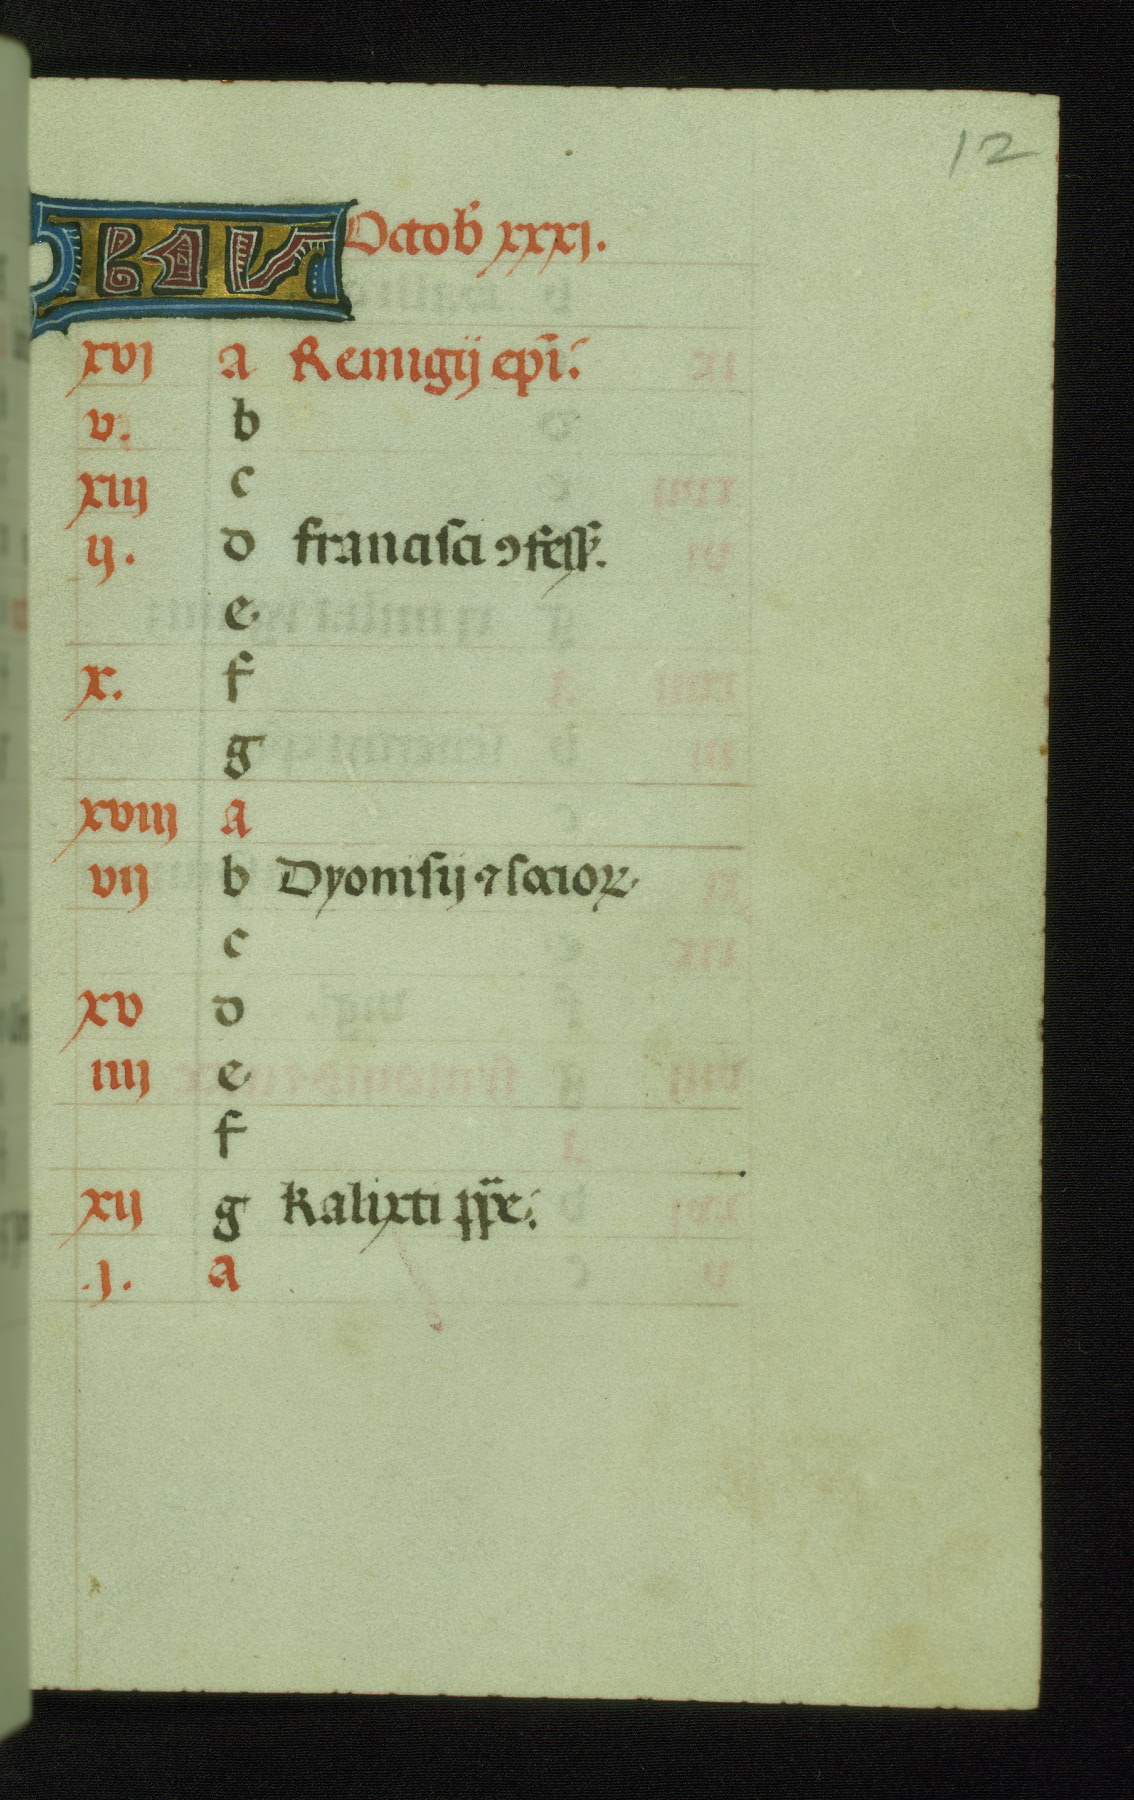 12
KAL Octob xxxi.
xvi a Remigij epi:
v. b
xiij c
ij. d francisci ꝯfess.
e
x. f
g
xviij a
vij b Dyonisij ⁊ socioꝝ
c
xv d
iiij e
f
xij g Kalixti ppe:
.j. a